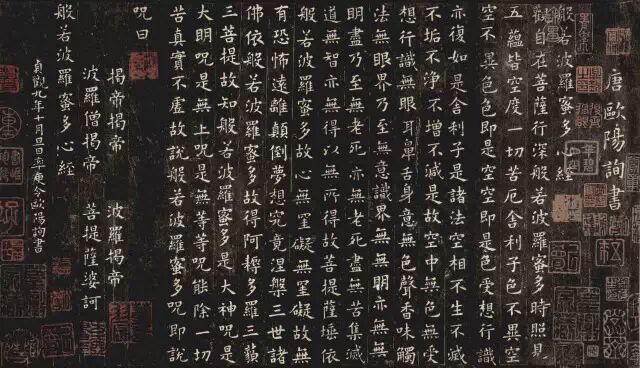 唐歐陽詢書
般若波羅蜜多心經
觀自在菩薩行深般若波羅蜜多時照見
五蘊皆空度一切苦厄舍利子色不異空
空不異色色即是空空即是色受想行識
亦復如是舍利子是諸法空相不生不滅
不垢不淨不增不減是故空中無色無受
想行識無眼耳鼻舌身意無色聲香味觸
法無眼界乃至無意識界無無明亦無無
明盡乃至無老死亦無老死盡無苦集滅
道無智亦無得以無所得故菩提薩埵依
般若波羅蜜多故心無罣礙無罣礙故無
有恐怖遠離顛倒夢想究竟涅槃三世諸
佛依般若波羅蜜多故得阿耨多羅三藐
三菩提故知般若波羅蜜多是大神呪是
大明呪是無上呪是無等等呪能除一切
苦真實不虛故說般若波羅蜜多呪即說
呪曰
揭帝揭帝 波羅揭帝
波羅僧揭帝 菩提薩婆訶
般若波羅蜜多心經
貞觀九年十月旦率更令歐陽詢書